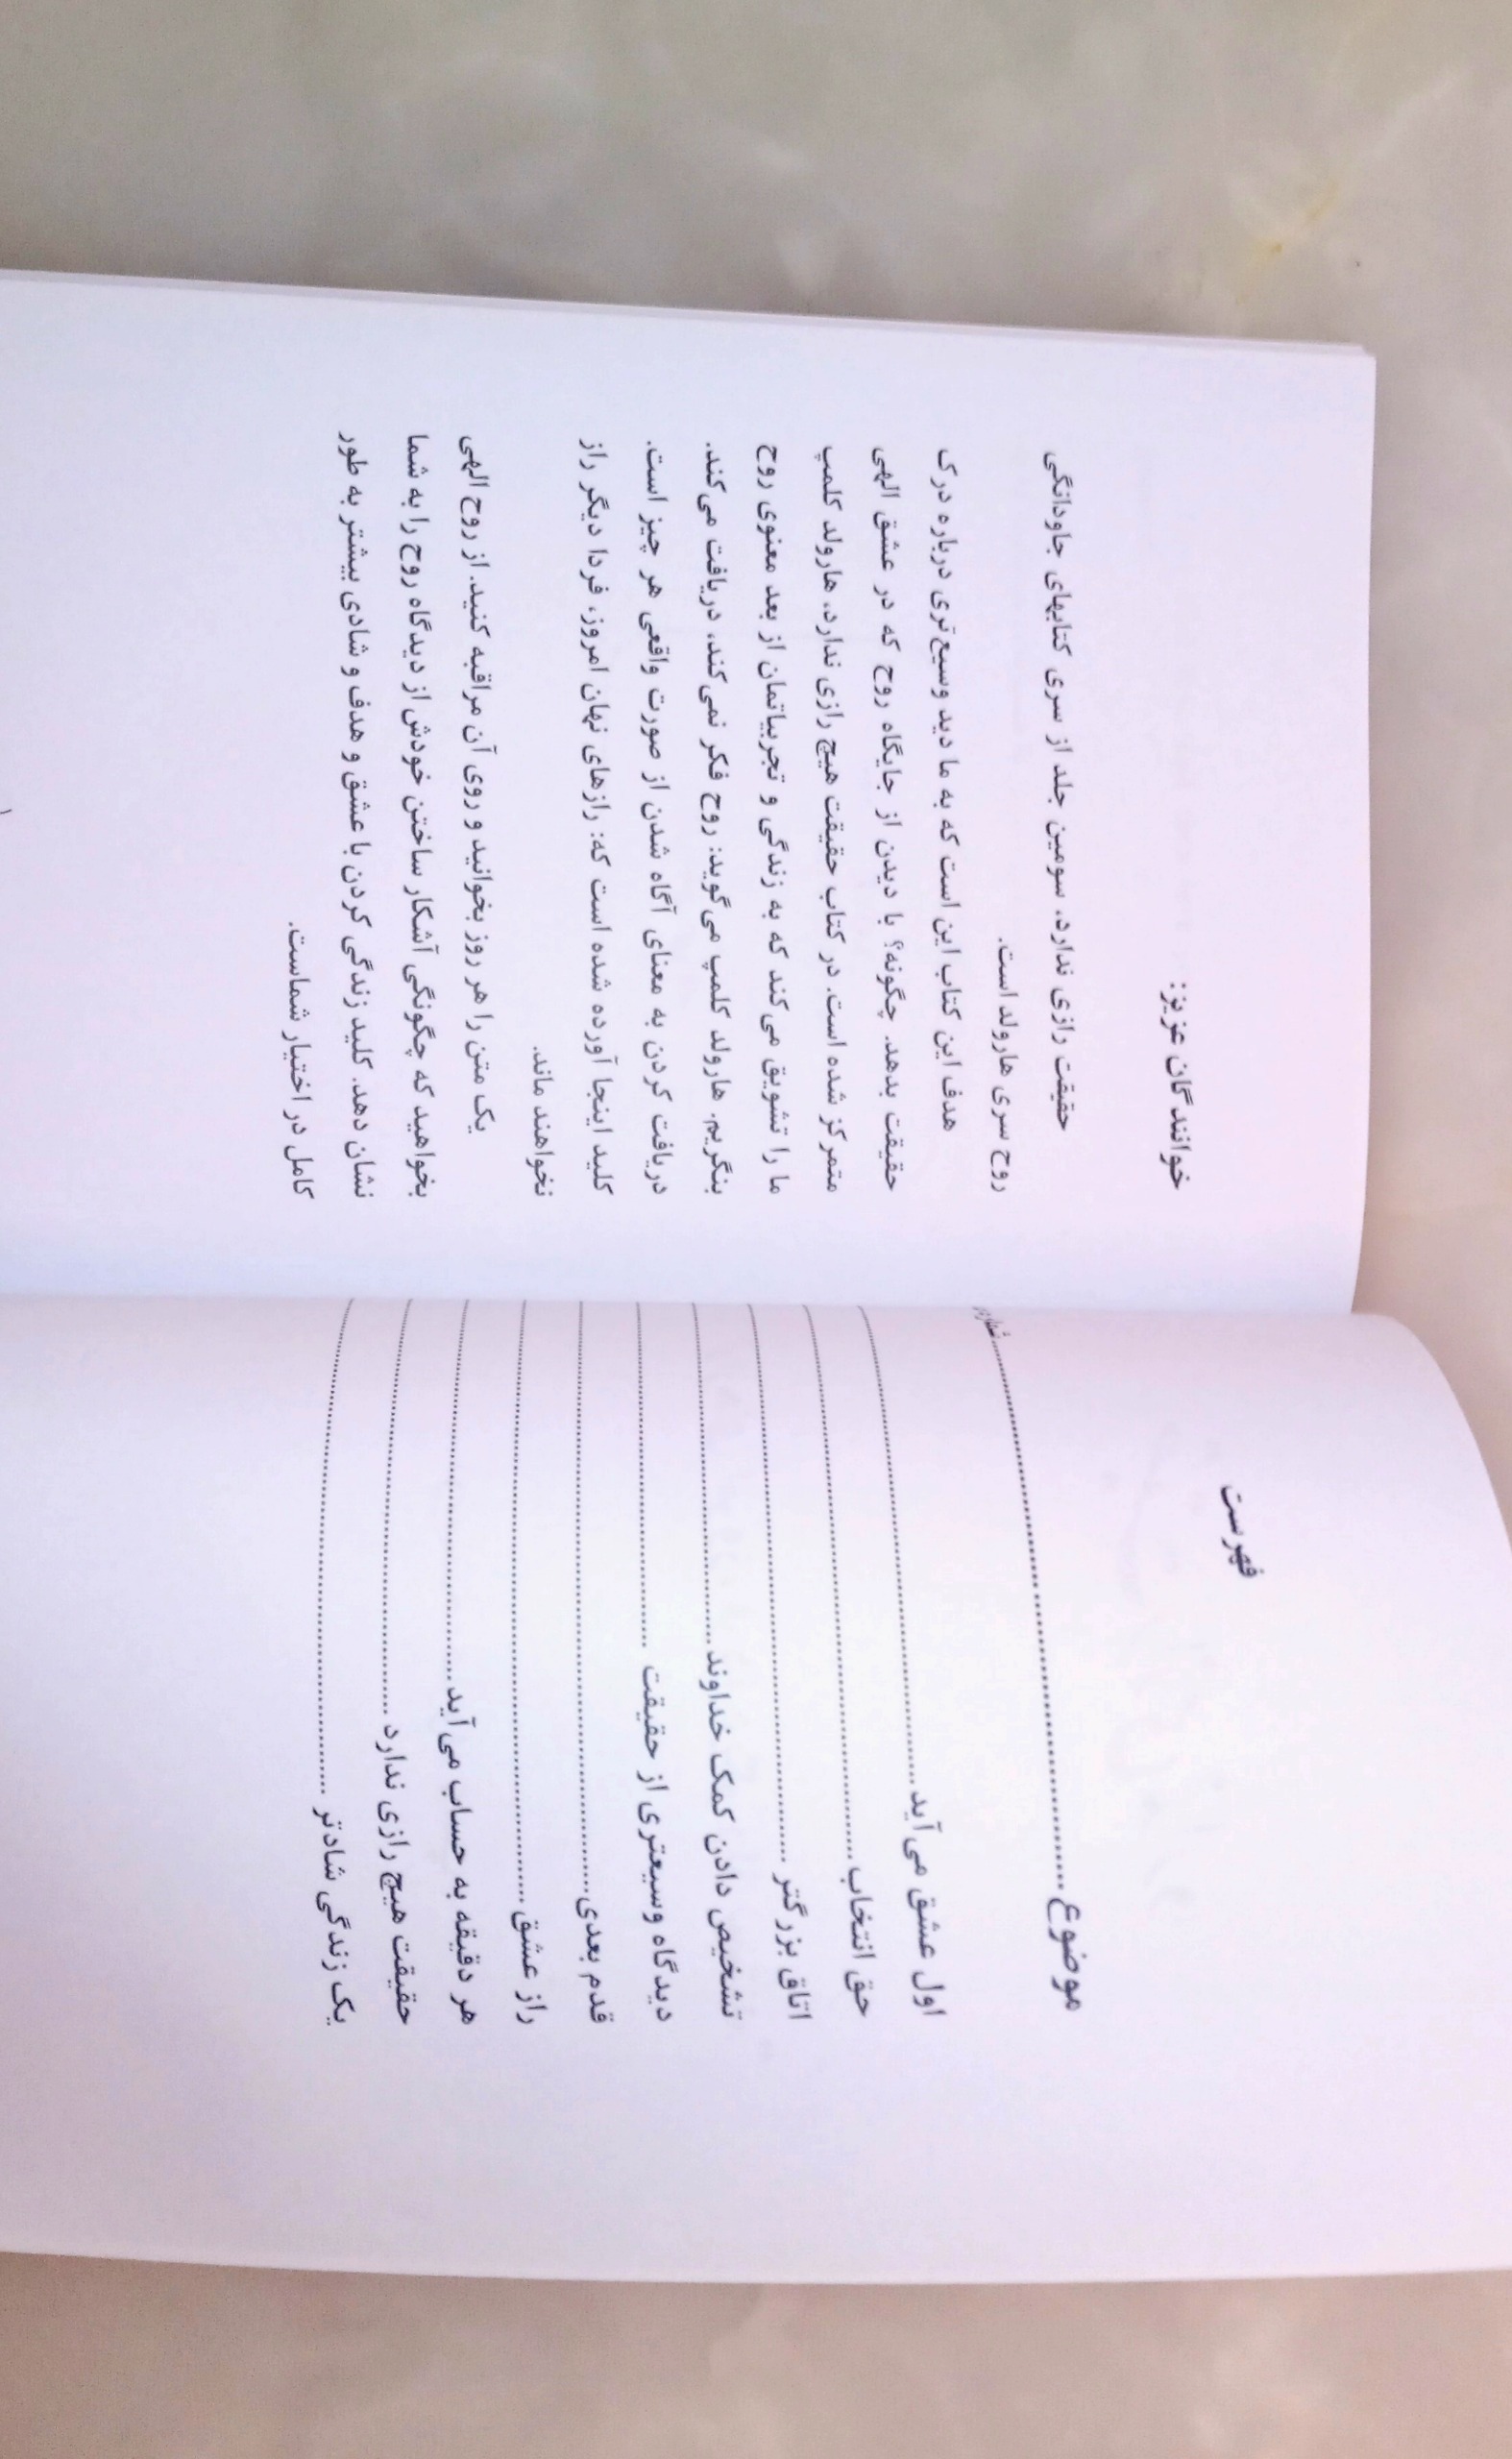 فهرست
موضوع................................................شماره
اول عشق می‌آید................................................
حق انتخاب................................................
اتاق بزرگتر ................................................
تشخیص دادن کمک خداوند................................................
دیدگاه وسیعتری از حقیقت ................................................
قدم بعدی................................................
راز عشق................................................
هر دقیقه به حساب می‌آید................................................
حقیقت هیچ رازی ندارد ................................................
یک زندگی شادتر ................................................
خوانندگان عزیز:
حقیقت رازی ندارد، سومین جلد از سری کتابهای جاودانگی
روح سری هارولد است.
هدف این کتاب این است که به ما دید وسیع‌تری درباره درک
حقیقت بدهد. چگونه؟ با دیدن از جایگاه روح که در عشق الهی
متمرکز شده است. در کتاب حقیقت هیچ رازی ندارد، هارولد کلمپ
ما را تشویق می‌کند که به زندگی و تجربیاتمان از بعد معنوی روح
بنگریم. هارولد کلمپ می‌گوید: روح فکر نمی‌کند، دریافت می‌کند.
دریافت کردن به معنای آگاه شدن از صورت واقعی هر چیز است.
کلید اینجا آورده شده است که: رازهای نهان امروز، فردا دیگر راز
نخواهند ماند.
یک متن را هر روز بخوانید و روی آن مراقبه کنید. از روح الهی
بخواهید که چگونگی آشکار ساختن خودش از دیدگاه روح را به شما
نشان دهد. کلید زندگی کردن با عشق و هدف و شادی بیشتر به طور
کامل در اختیار شماست.
۱